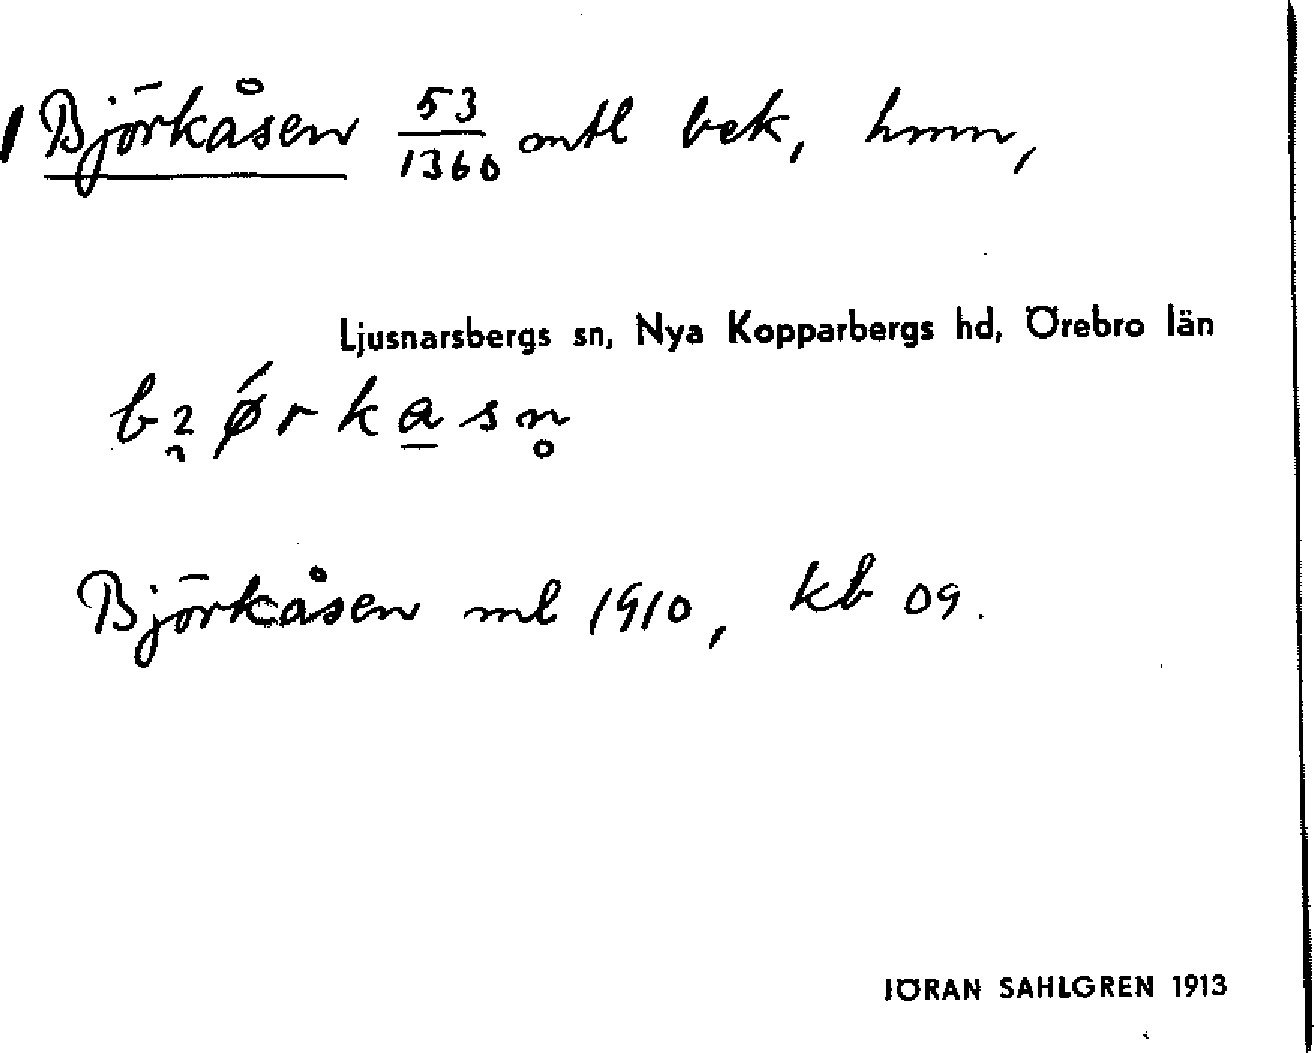 Björkåsen 53/1360 mtl bek, hmn,
Ljusnarsbergs sn, Nya Kopparbergs hd, Örebro län
Björkåsen ml 1910, kb 09.
JÖRAN SAHLGREN 1913